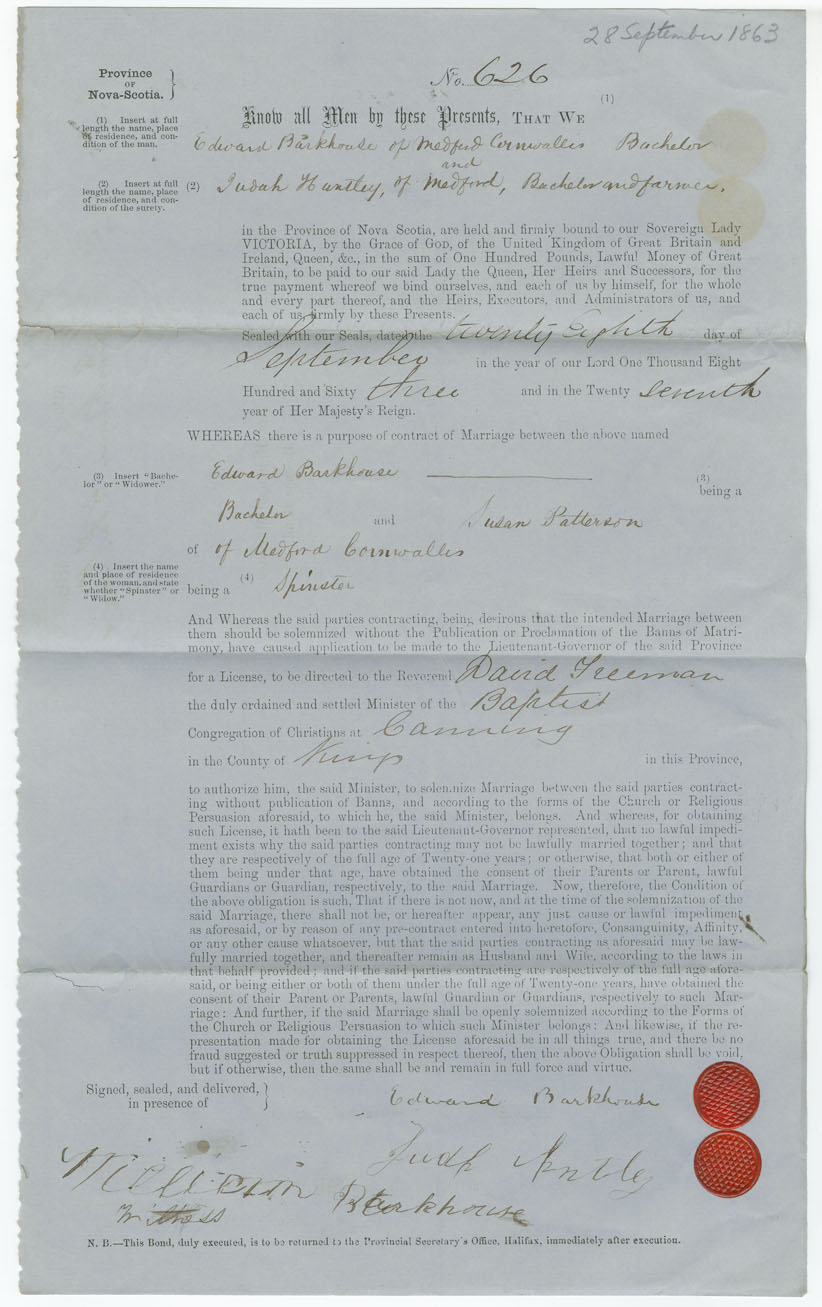 28 September 1863
Province
OF
Nova-Scotia.
No. 626
(1)
Know all Men by these Presents, THAT WE
(1) Insert at full length the name, place of residence, and condition of the man.
Edward Barkhouse of Medford Cornwallis Bachelor
and
(2) Insert at full length the name, place of residence, and condition of the surety.
(2) Judah Huntley, of Medford, Bachelor and farmer.
in the Province of Nova Scotia, are held and firmly bound to our Sovereign Lady
VICTORIA, by the Grace of GOD, of the United Kingdom of Great Britain and
Ireland, Queen, &c., in the sum of One Hundred Pounds, Lawful Money of Great
Britain, to be paid to our said Lady the Queen, Her Heirs and Successors, for the
true payment whereof we bind ourselves, and each of us by himself, for the whole
and every part thereof, and the Heirs, Executors, and Administrators of us, and
each of us firmly by these Presents.
Sealed with our Seals, dated the twenty Eighth day of
September in the year of our Lord One Thousand Eight
Hundred and Sixty three and in the Twenty seventh
year of Her Majesty's Reign.
WHEREAS there is a purpose of contract of Marriage between the above named
(3) Insert "Bachelor" or "Widower."
Edward Barkhouse (3)
being a
Bachelor and Susan Patterson
of of Medford Cornwallis
(4) Insert the name and place of residence of the woman, and state whether "Spinster" or "Widow."
being a (4) Spinster
And Whereas the said parties contracting, being desirous that the intended Marriage between
them should be solemnized without the Publication or Proclamation of the Banns of Matri-
mony, have caused application to be made to the Lieutenant-Governor of the said Province
for a License, to be directed to the Reverend David Freeman
the duly ordained and settled Minister of the Baptist
Congregation of Christians at Canning
in the County of Kings in this Province,
to authorize him, the said Minister, to solemnize Marriage between the said parties contract-
ing without publication of Banns, and according to the forms of the Church or Religious
Persuasion aforesaid, to which he, the said Minister, belongs. And whereas, for obtaining
such License, it hath been to the said Lieutenant-Governor represented, that no lawful impedi-
ment exists why the said parties contracting may not be lawfully married together; and that
they are respectively of the full age of Twenty-one years; or otherwise, that both or either of
them being under that age, have obtained the consent of their Parents or Parent, lawful
Guardians or Guardian, respectively, to the said Marriage. Now, therefore, the Condition of
the above obligation is such, That if there is not now, and at the time of the solemnization of the
said Marriage, there shall not be, or hereafter appear, any just cause or lawful impediment,
as aforesaid, or by reason of any pre-contract entered into heretofore, Consanguinity, Affinity,
or any other cause whatsoever, but that the said parties contracting as aforesaid may be law-
fully married together, and thereafter remain as Husband and Wife, according to the laws in
that behalf provided; and if the said parties contracting are respectively of the full age afore-
said, or being either or both of them under the full age of Twenty-one years, have obtained the
consent of their Parent or Parents, lawful Guardian or Guardians, respectively to such Mar-
riage: And further, if the said Marriage shall be openly solemnized according to the Forms of
the Church or Religious Persuasion to which such Minister belongs: And likewise, if the re-
presentation made for obtaining the License aforesaid be in all things true, and there be no
fraud suggested or truth suppressed in respect thereof, then the above Obligation shall be void,
but if otherwise, then the same shall be and remain in full force and virtue.
Signed, sealed, and delivered,
in presence of
Edward Barkhouse
Judh Antley
William Barkhouse
N. B.—This Bond, duly executed, is to be returned to the Provincial Secretary's Office, Halifax, immediately after execution.